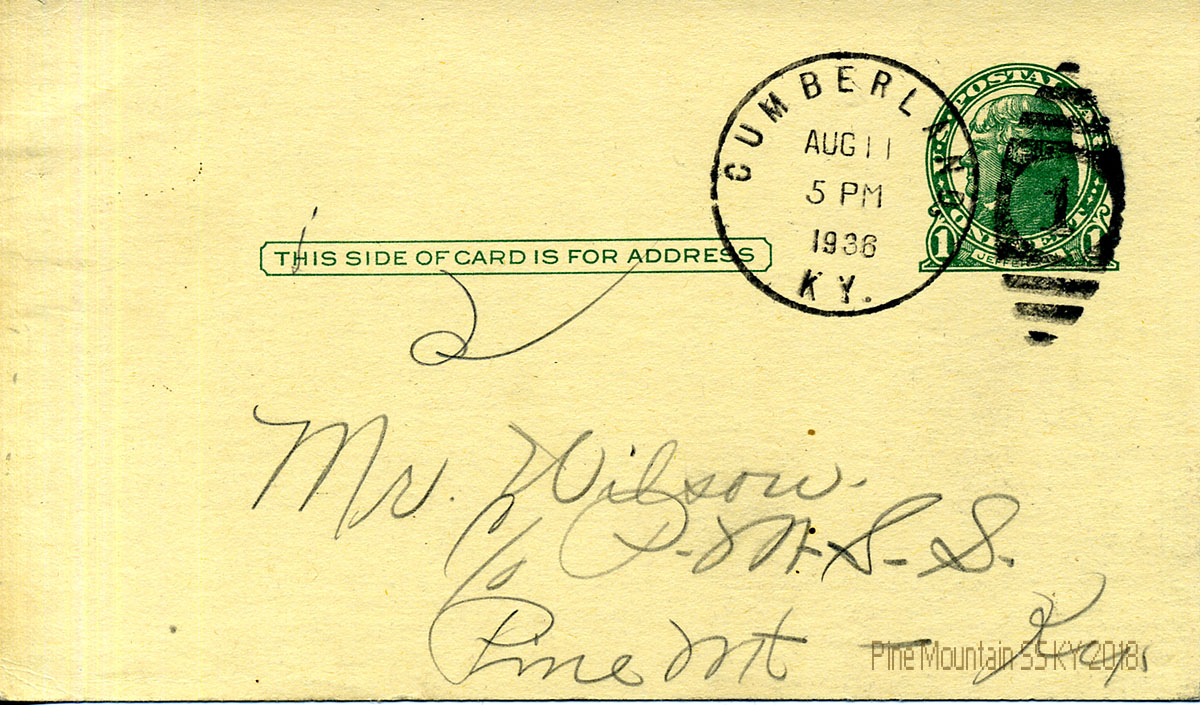 CUMBERLAND
AUG 11
5 PM
1936
KY.
U.S. POSTAL
JEFFERSON
1 1
1
THIS SIDE OF CARD IS FOR ADDRESS
Mr. Wilson.
c/o P.M.S.S.
Pine Mt - Ky.
Pine Mountain SS KY 2018